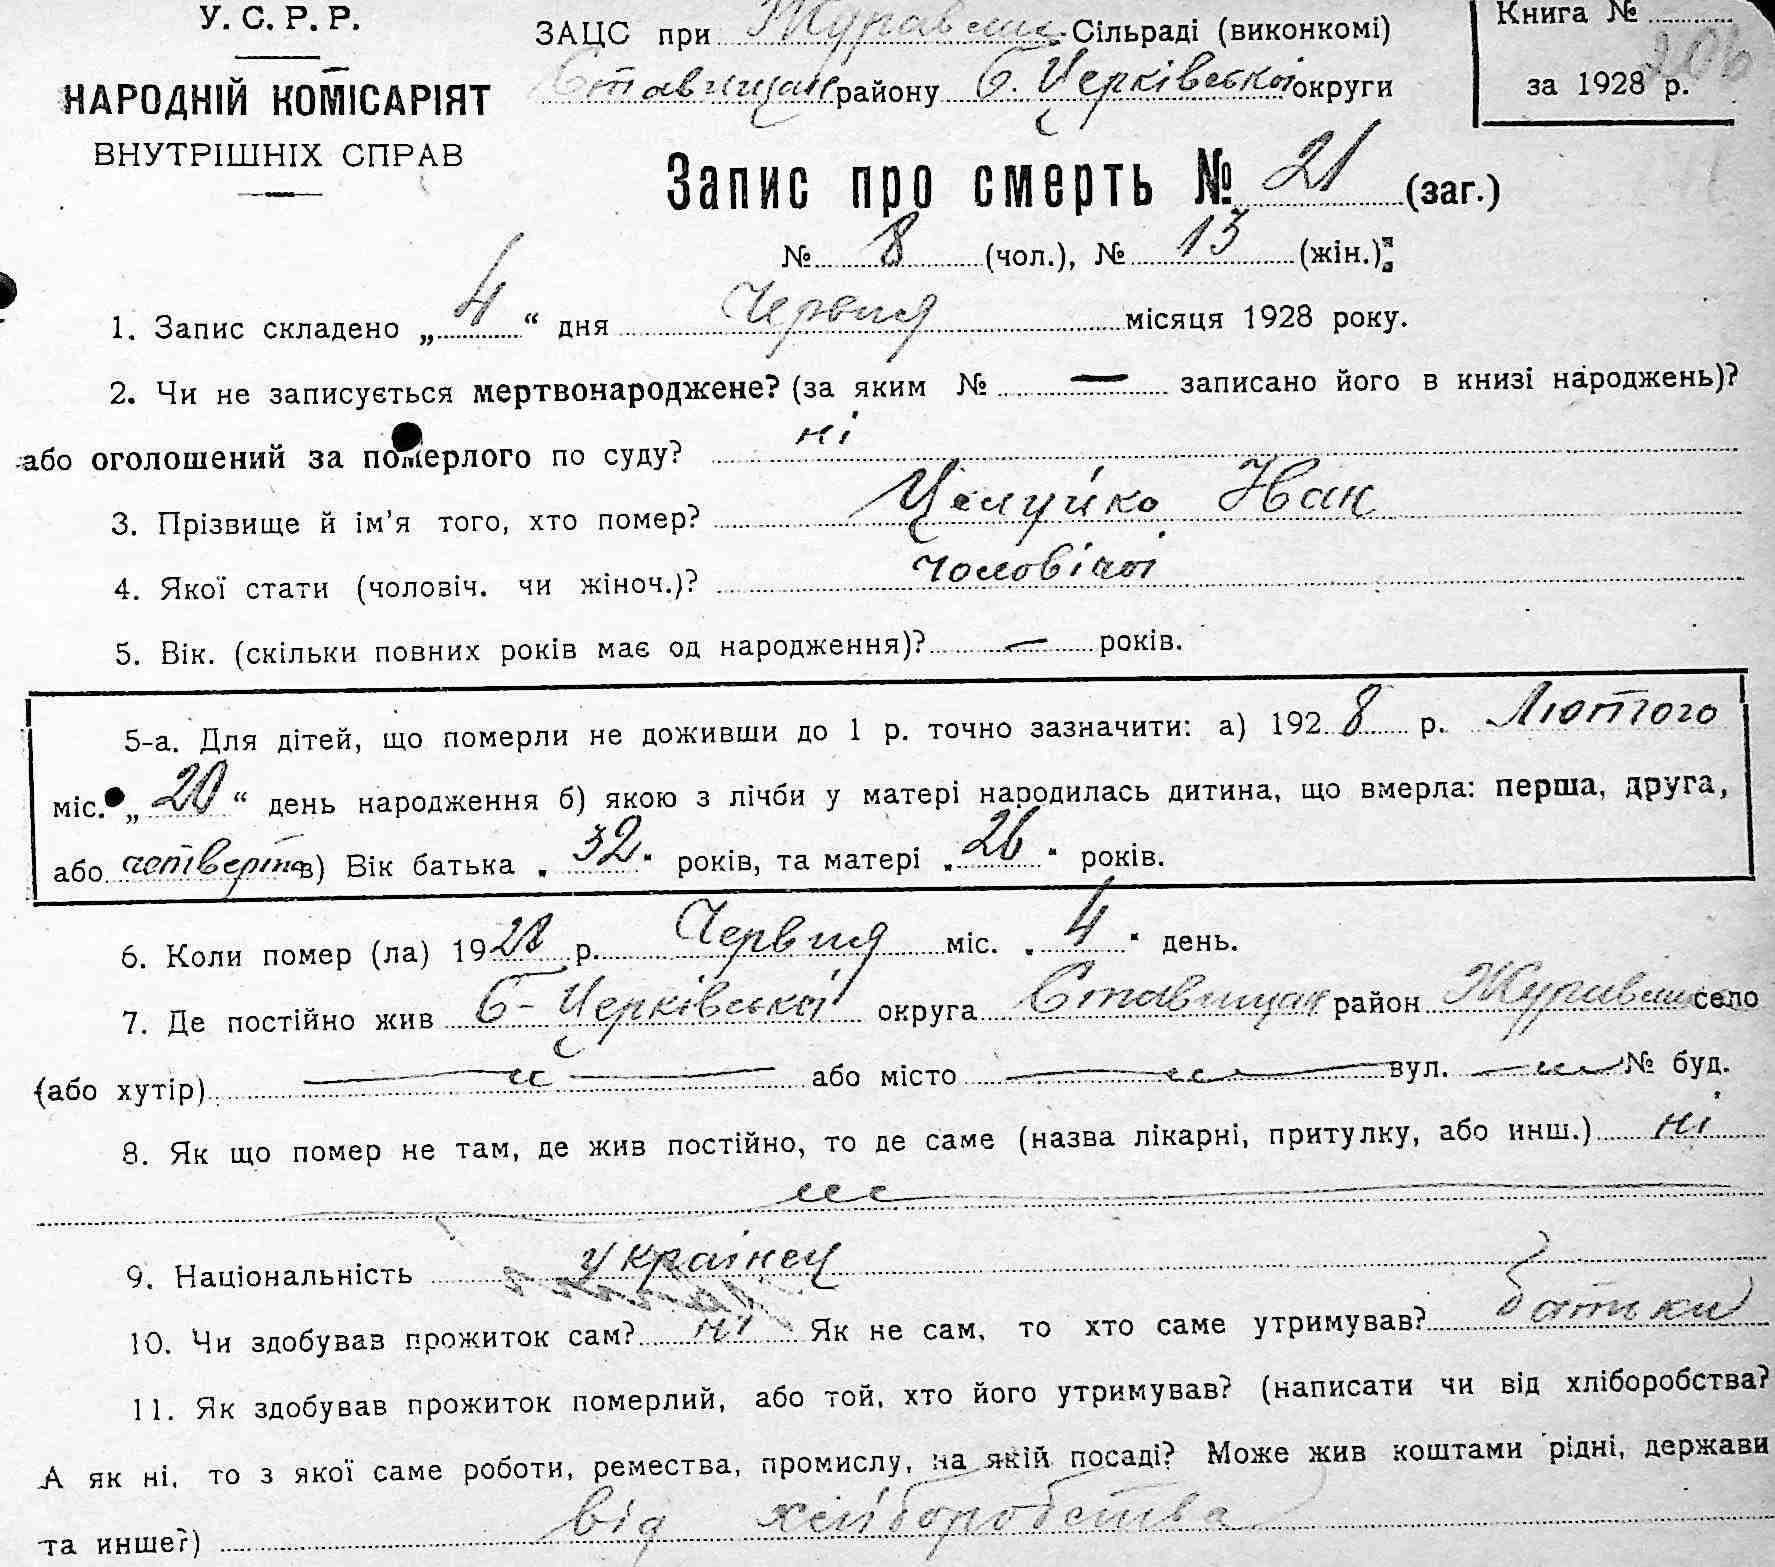 У. С. Р. Р.
НАРОДНІЙ КОМІСАРІЯТ
ВНУТРІШНІХ СПРАВ
ЗАЦС при Журавлис. Сільраді (виконкомі)
Ставищан району Б. Церківської округи
Книга №
за 1928 р.
206
Запис про смерть № 21 (заг.)
№ 8 (чол.), № 13 (жін.)
1. Запис складено „ 4 “ дня Червня місяця 1928 року.
2. Чи не записується мертвонароджене? (за яким № — записано його в книзі народжень)?
або оголошений за померлого по суду? ні
3. Прізвище й ім’я того, хто помер? Целуйко Іван
4. Якої стати (чоловіч. чи жіноч.)? чоловічої
5. Вік. (скільки повних років має од народження)? — років.
5-а. Для дітей, що померли не доживши до 1 р. точно зазначити: а) 1928 р. Лютого
міс. „ 20 “ день народження б) якою з лічби у матері народилась дитина, що вмерла: перша, друга,
або четверта в) Вік батька „ 32 “ років, та матері „ 26 “ років.
6. Коли помер (ла) 1928 р. Червня міс. „ 4 “ день.
7. Де постійно жив Б-Церківської округа Ставищан район село
(або хутір) — „ — або місто — „ — вул. — „ — № буд.
8. Як що помер не там, де жив постійно, то де саме (назва лікарні, притулку, або инш.) ні
9. Національність українец
10. Чи здобував прожиток сам? ні Як не сам, то хто саме утримував? батьки
11. Як здобував прожиток померлий, або той, хто його утримував? (написати чи від хліборобства?
А як ні, то з якої саме роботи, ремества, промислу, на якій посаді? Може жив коштами рідні, держави
та инше?) від хліборобства